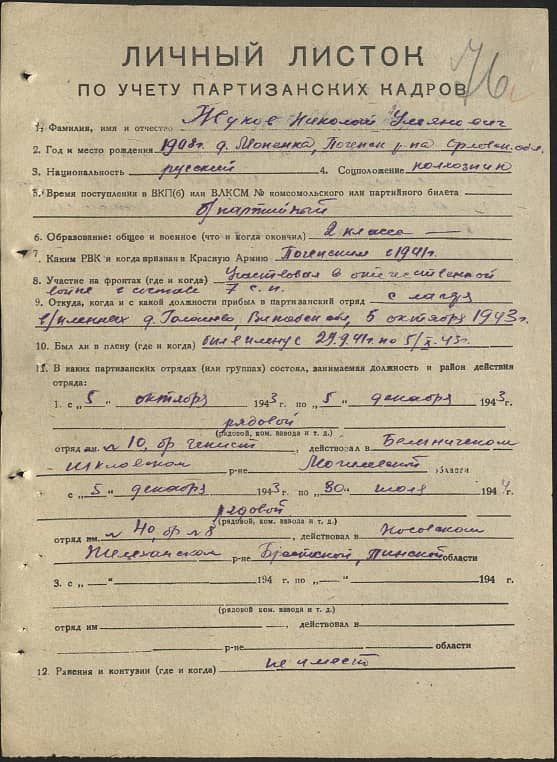 76
ЛИЧНЫЙ ЛИСТОК
ПО УЧЕТУ ПАРТИЗАНСКИХ КАДРОВ
1. Фамилия, имя и отчество Жуков Николай Ульянович
2. Год и место рождения 1908 г. д. Погенск. р-на Орловск. обл.
3. Национальность русский 4. Соцположение колхозник
5. Время поступления в ВКП(б) или ВЛКСМ № комсомольского или партийного билета
б/партийный
6. Образование: общее и военное (что и когда окончил) 2 класса
7. Каким РВК и когда призван в Красную Армию Погенским с 1941 г.
8. Участие на фронтах (где и когда) Участвовал в отечественной
войне в составе 7 с. п.
9. Откуда, когда и с какой должности прибыл в партизанский отряд с лагеря
в/пленных д. 5 октября 1943 г.
10. Был ли в плену (где и когда) был в плену с 29.9.41 г. по 5/X.43 г.
11. В каких партизанских отрядах (или группах) состоял, занимаемая должность и район действия
отряда:
1. с „5" октября 1943 г. по „5" декабря 1943 г.
рядовой
(рядовой, ком. взвода и т. д.)
отряд им. № 10, бр. Чекист, действовал в Белыничском
Шкловском р-не Могилевской области
с „5" декабря 1943 г. по „30" июля 1944 г.
рядовой
(рядовой, ком. взвода и т. д.)
отряд им. № 40, бр. № 8, действовал в Косовском
Телеханском р-не Брестской, Пинской области
3. с „—" 194 г. по „—" 194 г.
(рядовой, ком. взвода и т. д.)
отряд им , действовал в
р-не области
12. Ранения и контузии (где и когда) не имеет